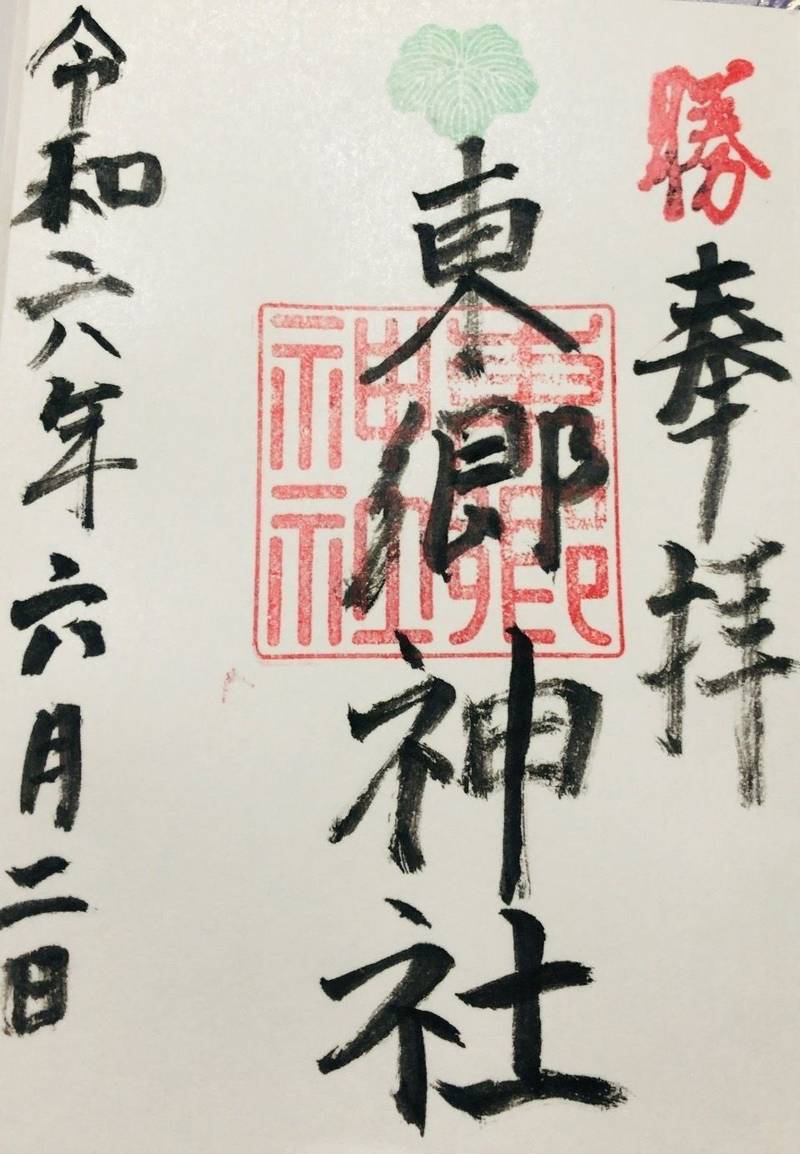 勝
奉拝
東郷神社
東郷神社
令和六年六月二日